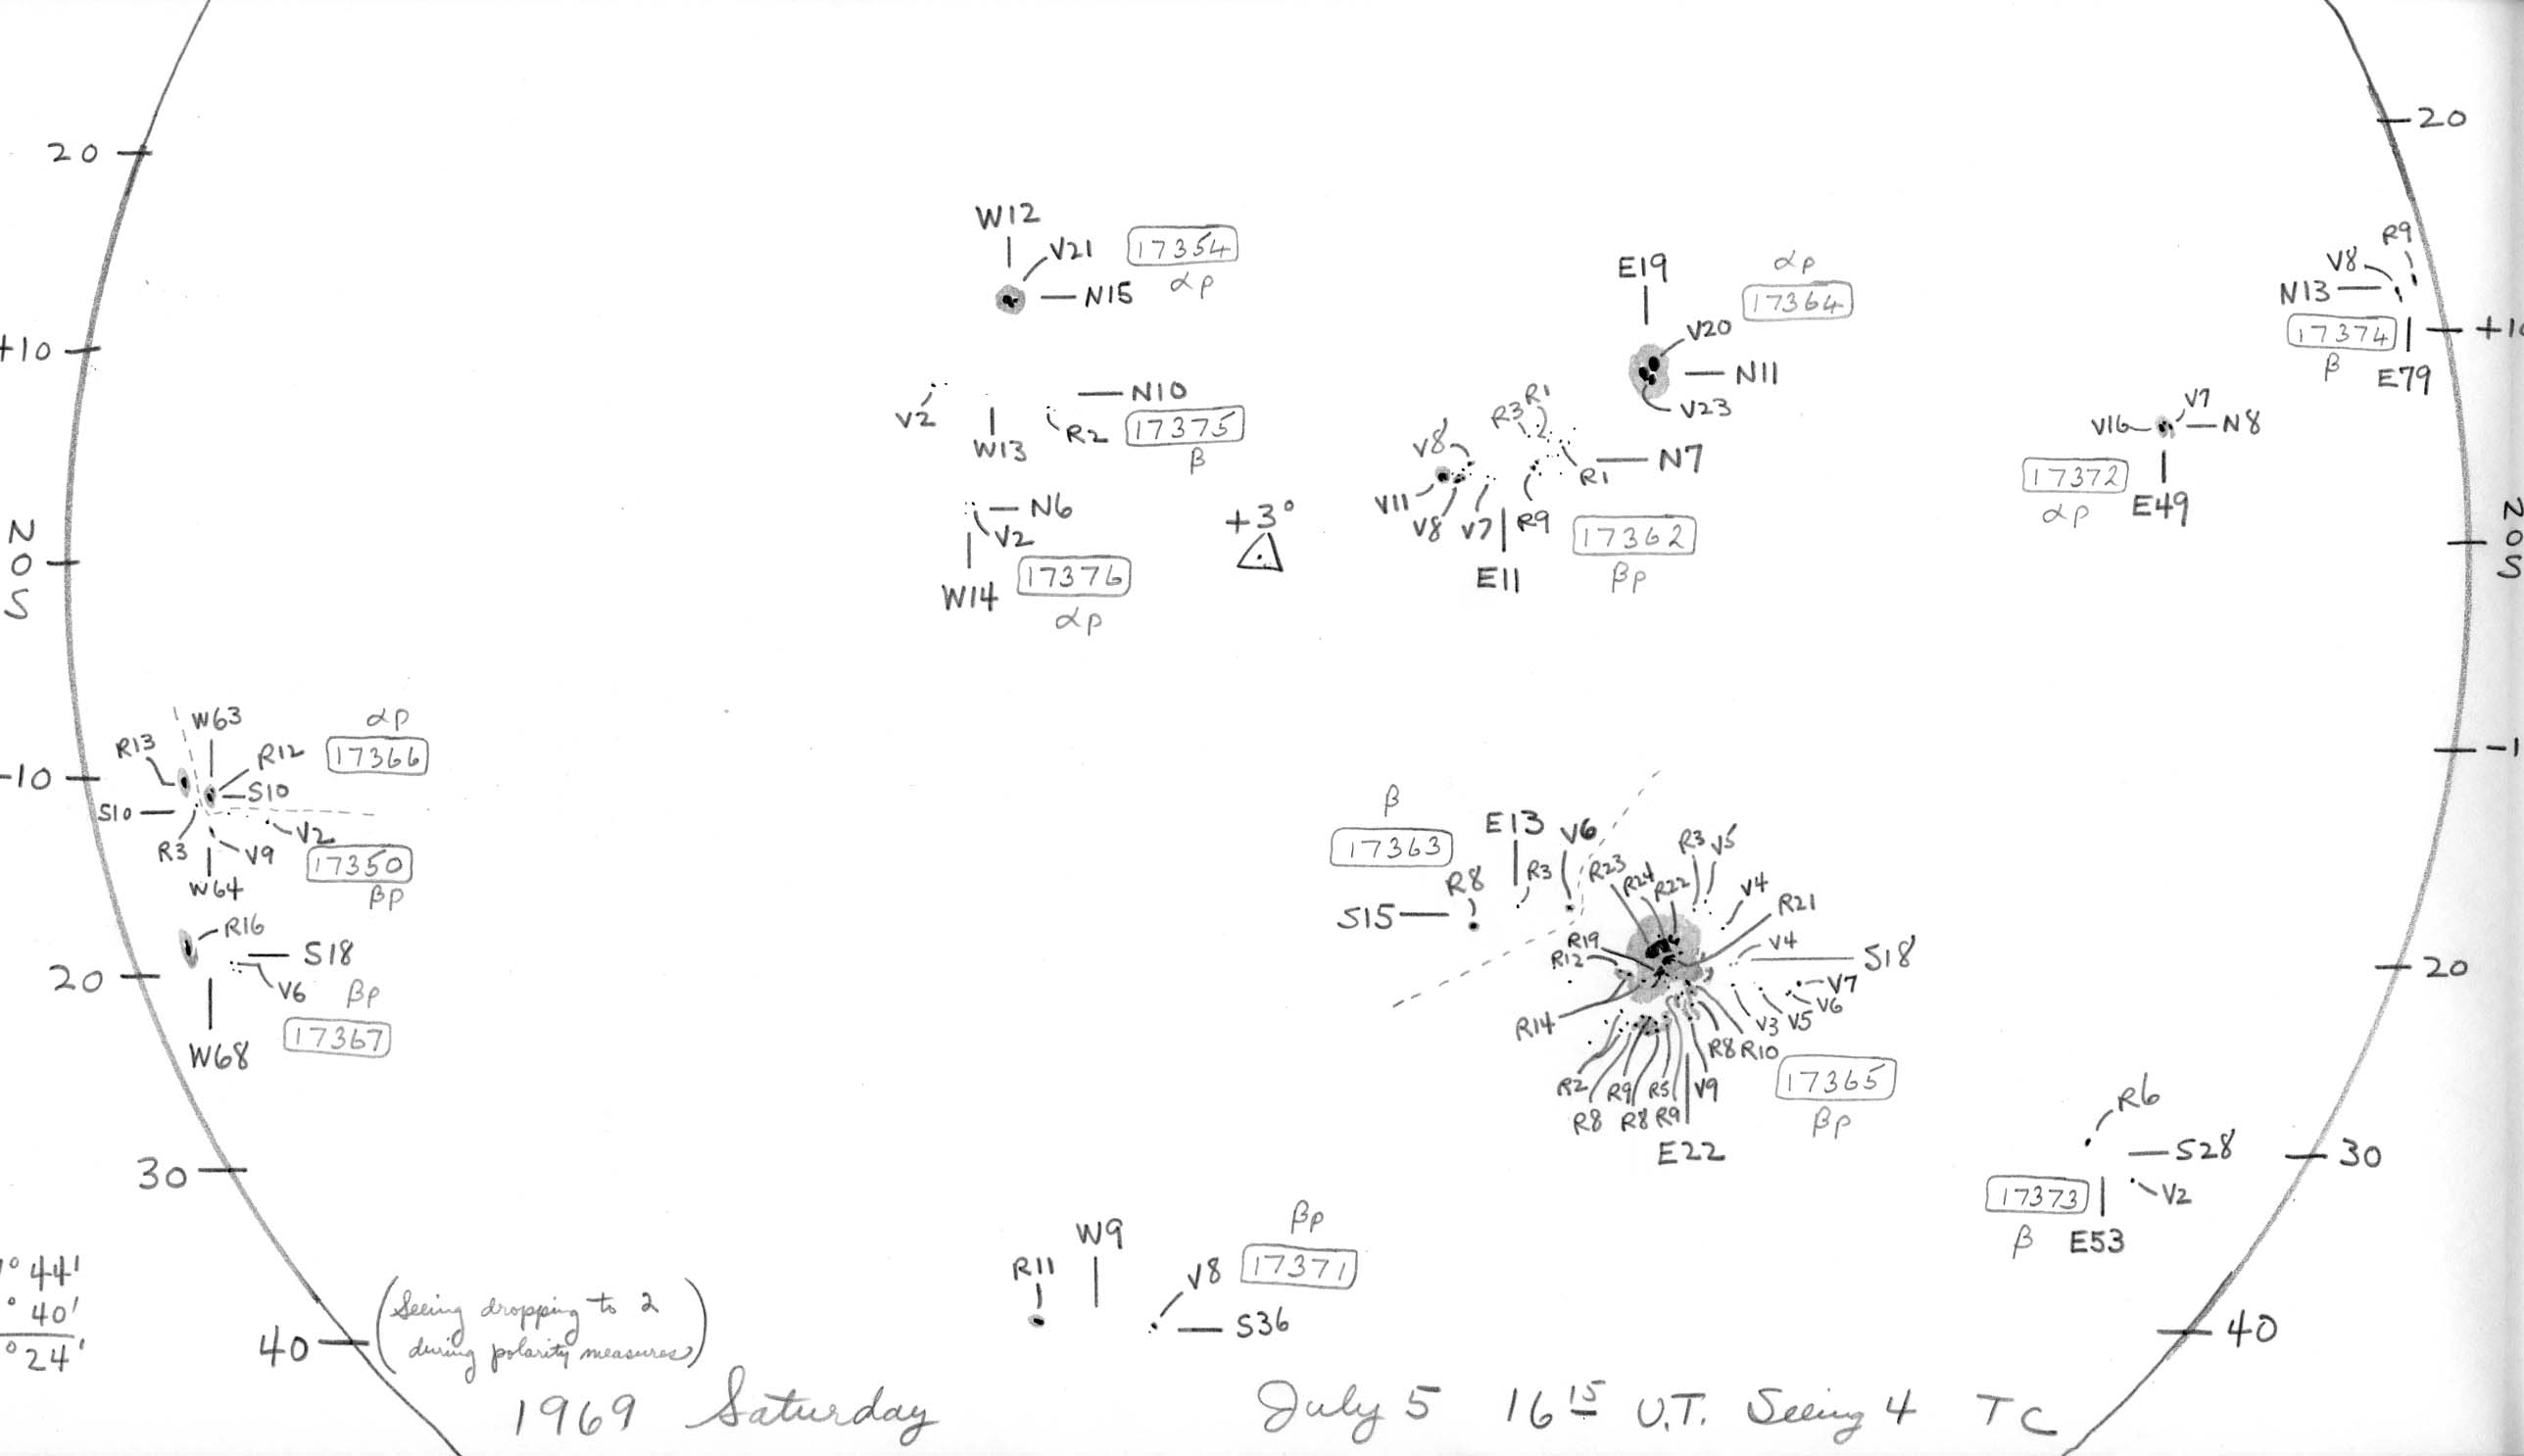 20
+10
N
0
S
-10
20
30
40
° 44'
° 40'
° 24'
20
N
0
S
20
30
40
W12
V21
17354
αp
N15
V2
W13
R2
N10
17375
β
N6
V2
W14
17376
αp
+3°
E19
αp
17364
V20
N11
V23
R3
R1
V8
V11
V8
V7
R9
R1
N7
E11
17362
βp
R9
V8
N13
17374
β
E79
V7
V16
N8
17372
αp
E49
W63
αp
R13
R12
17366
S10
S10
R3
V9
V2
W64
17350
βp
R16
S18
V6
βp
W68
17367
β
17363
E13
V6
R8
R3
S15
R23
R24
R22
R3
V5
V4
R21
R19
R12
V4
S18
V7
V6
R14
V3
V5
R8
R10
R2
R9
R5
V9
R8
R8
R9
17365
βp
E22
R6
S28
17373
V2
β
E53
W9
βp
R11
V8
17371
S36
(Seeing dropping to 2
during polarity measures)
1969 Saturday July 5 16 15 U.T. Seeing 4 TC